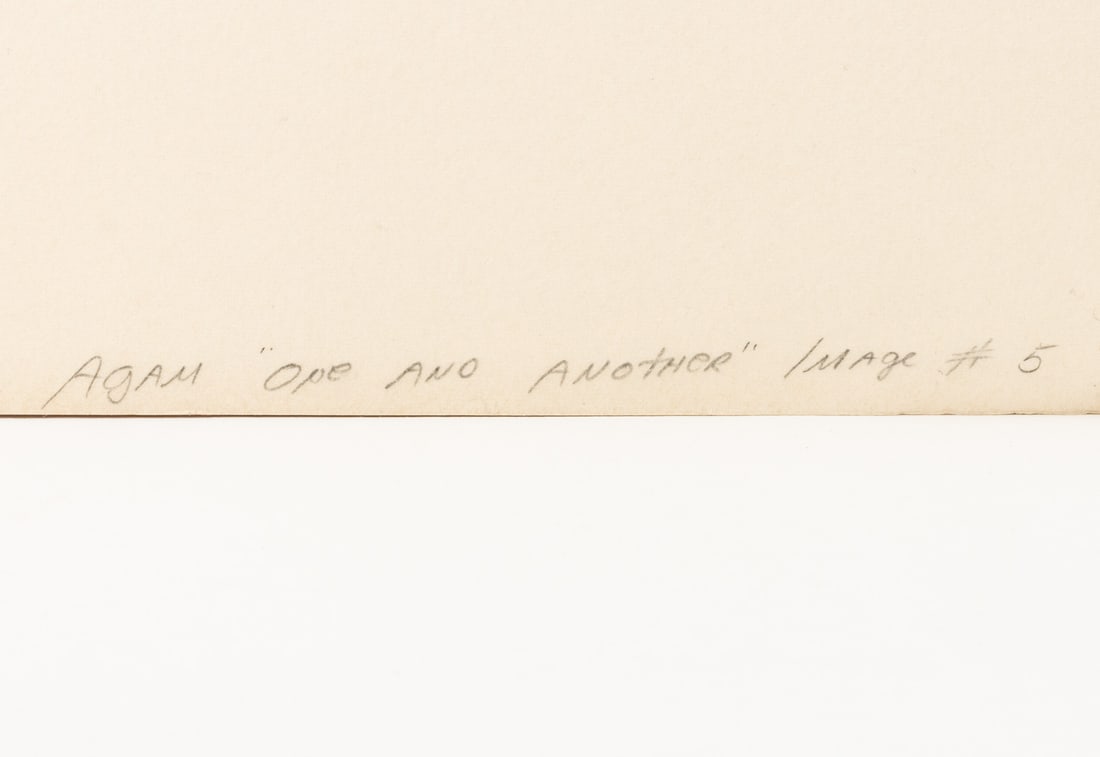 Agam "One and Another" Image # 5